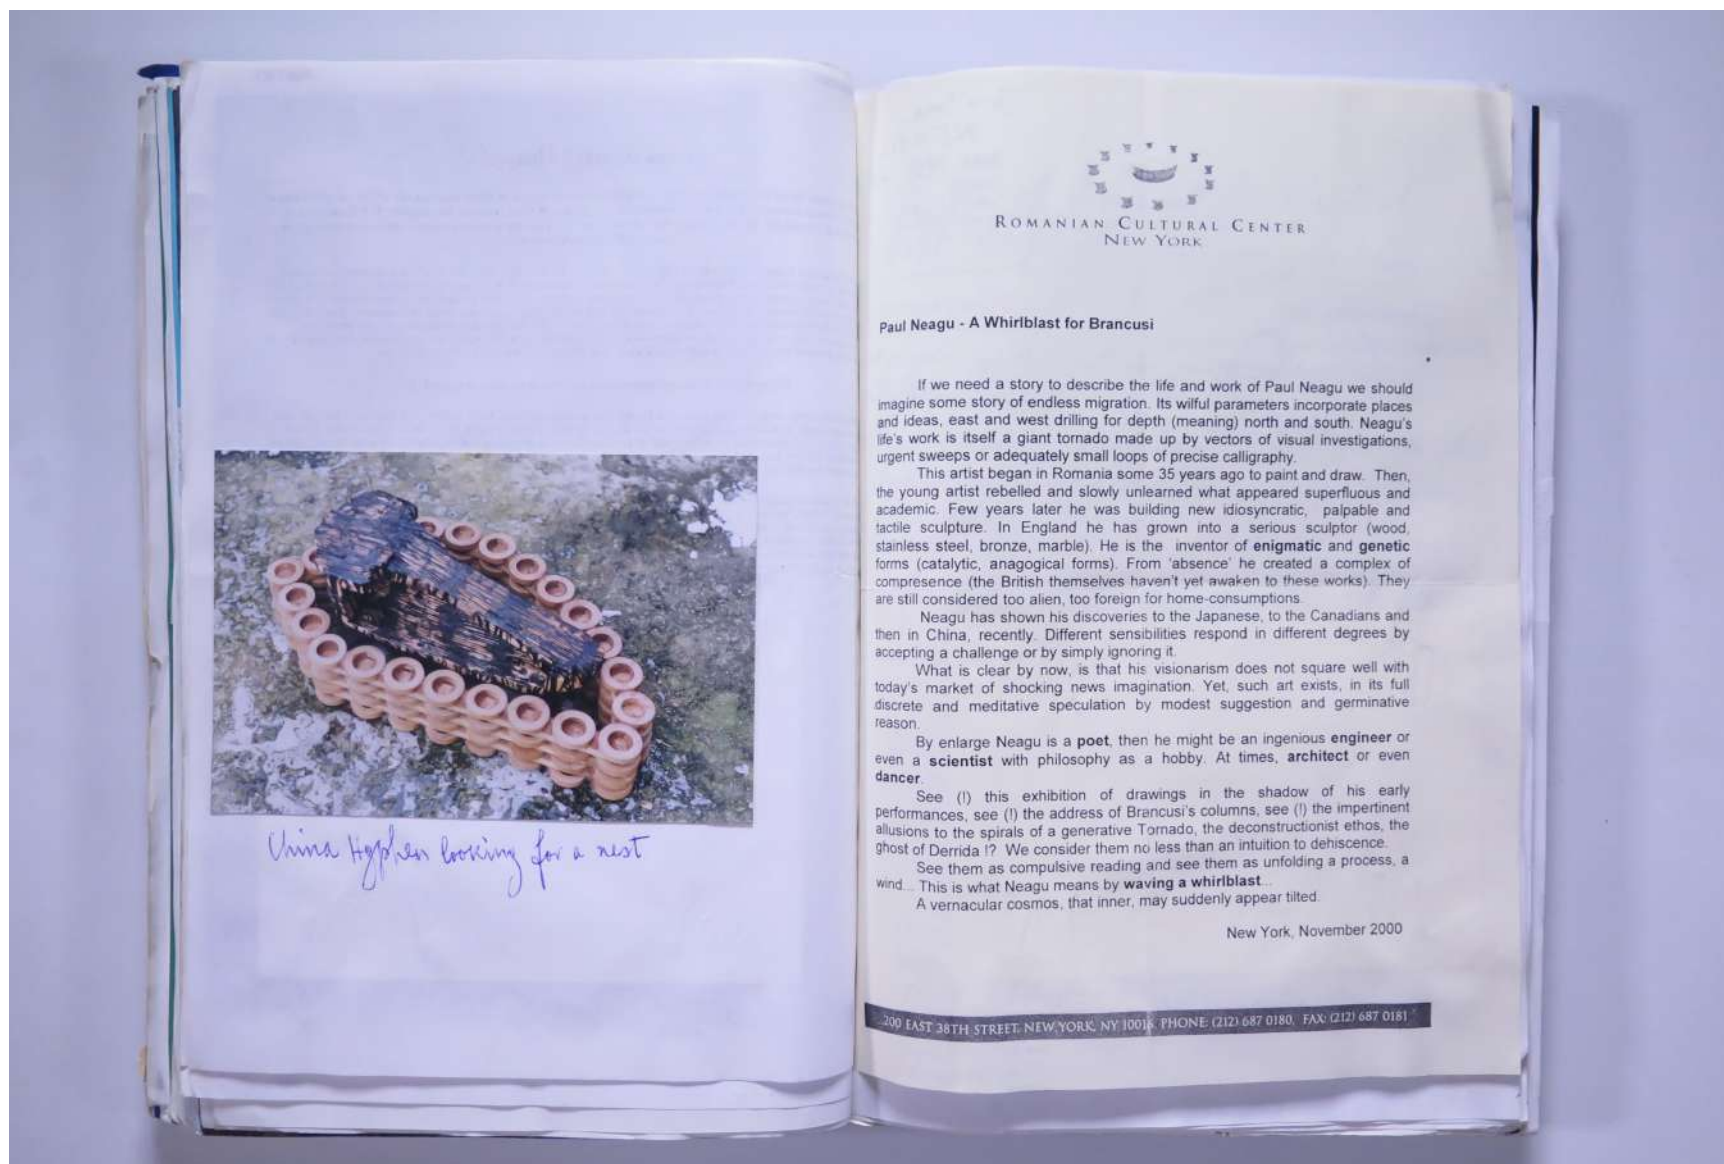 China Hyphen looking for a nest
ROMANIAN CULTURAL CENTER
NEW YORK
Paul Neagu - A Whirlblast for Brancusi
If we need a story to describe the life and work of Paul Neagu we should
imagine some story of endless migration. Its wilful parameters incorporate places
and ideas, east and west drilling for depth (meaning) north and south. Neagu's
life's work is itself a giant tornado made up by vectors of visual investigations,
urgent sweeps or adequately small loops of precise calligraphy.
This artist began in Romania some 35 years ago to paint and draw. Then,
the young artist rebelled and slowly unlearned what appeared superfluous and
academic. Few years later he was building new idiosyncratic, palpable and
tactile sculpture. In England he has grown into a serious sculptor (wood,
stainless steel, bronze, marble). He is the inventor of enigmatic and genetic
forms (catalytic, anagogical forms). From 'absence' he created a complex of
compresence (the British themselves haven't yet awaken to these works). They
are still considered too alien, too foreign for home-consumptions.
Neagu has shown his discoveries to the Japanese, to the Canadians and
then in China, recently. Different sensibilities respond in different degrees by
accepting a challenge or by simply ignoring it.
What is clear by now, is that his visionarism does not square well with
today's market of shocking news imagination. Yet, such art exists, in its full
discrete and meditative speculation by modest suggestion and germinative
reason.
By enlarge Neagu is a poet, then he might be an ingenious engineer or
even a scientist with philosophy as a hobby. At times, architect or even
dancer.
See (!) this exhibition of drawings in the shadow of his early
performances, see (!) the address of Brancusi's columns, see (!) the impertinent
allusions to the spirals of a generative Tornado, the deconstructionist ethos, the
ghost of Derrida !? We consider them no less than an intuition to dehiscence.
See them as compulsive reading and see them as unfolding a process, a
wind... This is what Neagu means by waving a whirlblast...
A vernacular cosmos, that inner, may suddenly appear tilted.
New York, November 2000
200 EAST 38TH STREET, NEW YORK, NY 10016 PHONE: (212) 687 0180, FAX: (212) 687 0181